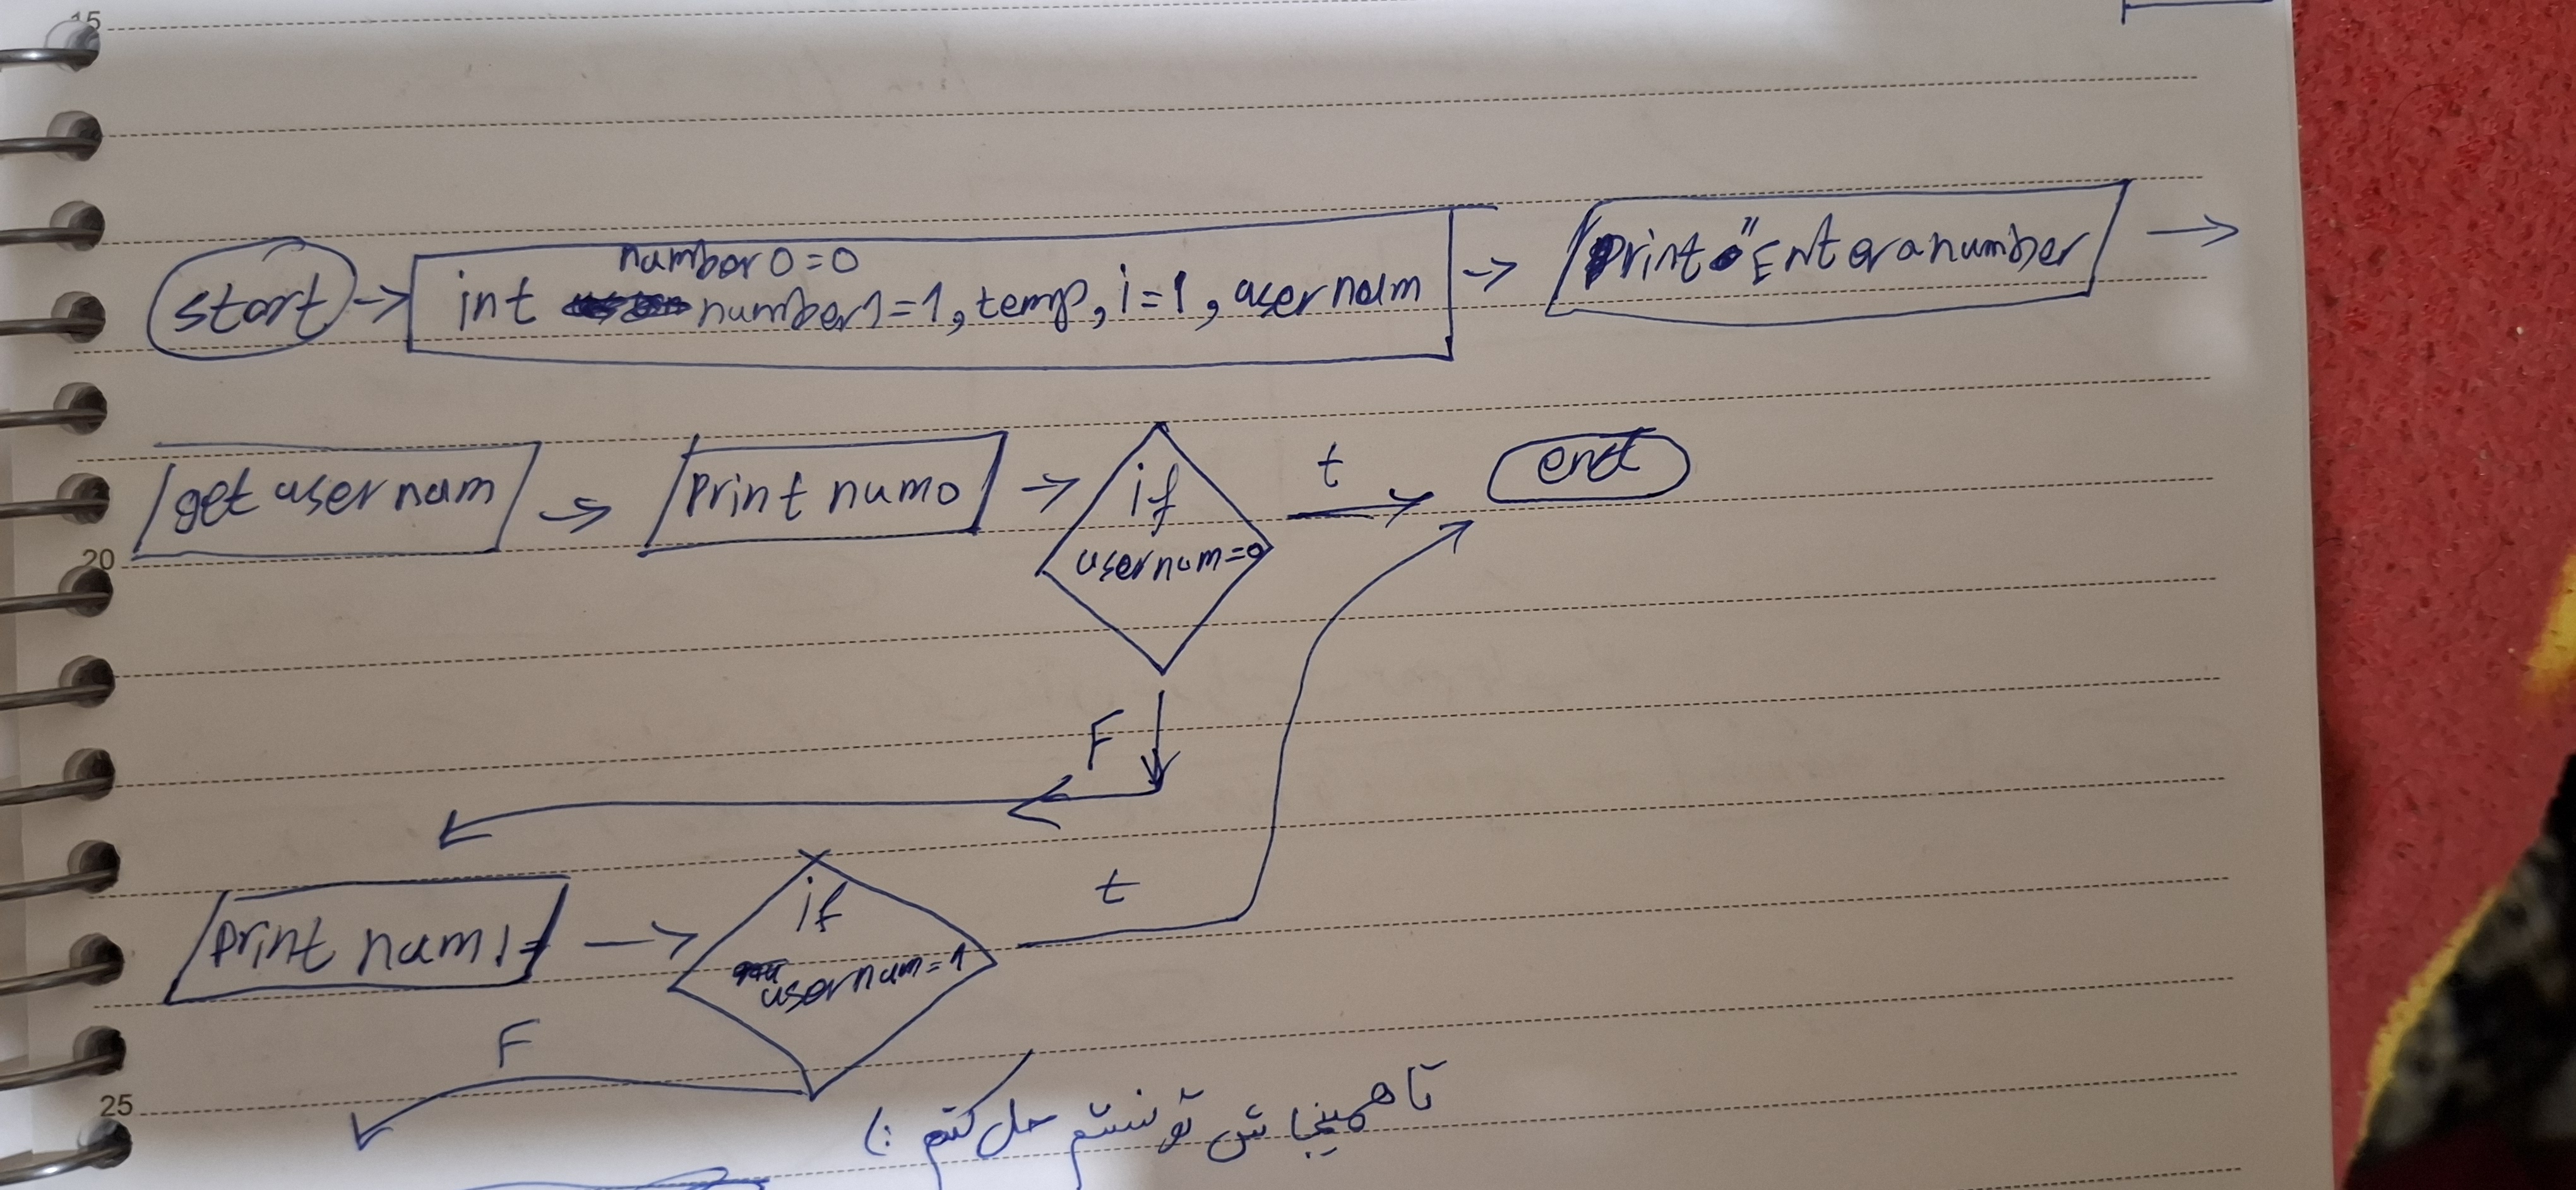 15
start
number 0=0
int number1=1, temp, i=1, usernum
print "Enter a number
20
get usernum
print num0
if
usernum=0
t
end
F
print num1
if
usernum=1
t
F
25
تا همینجاش تونستم حل کنم :(